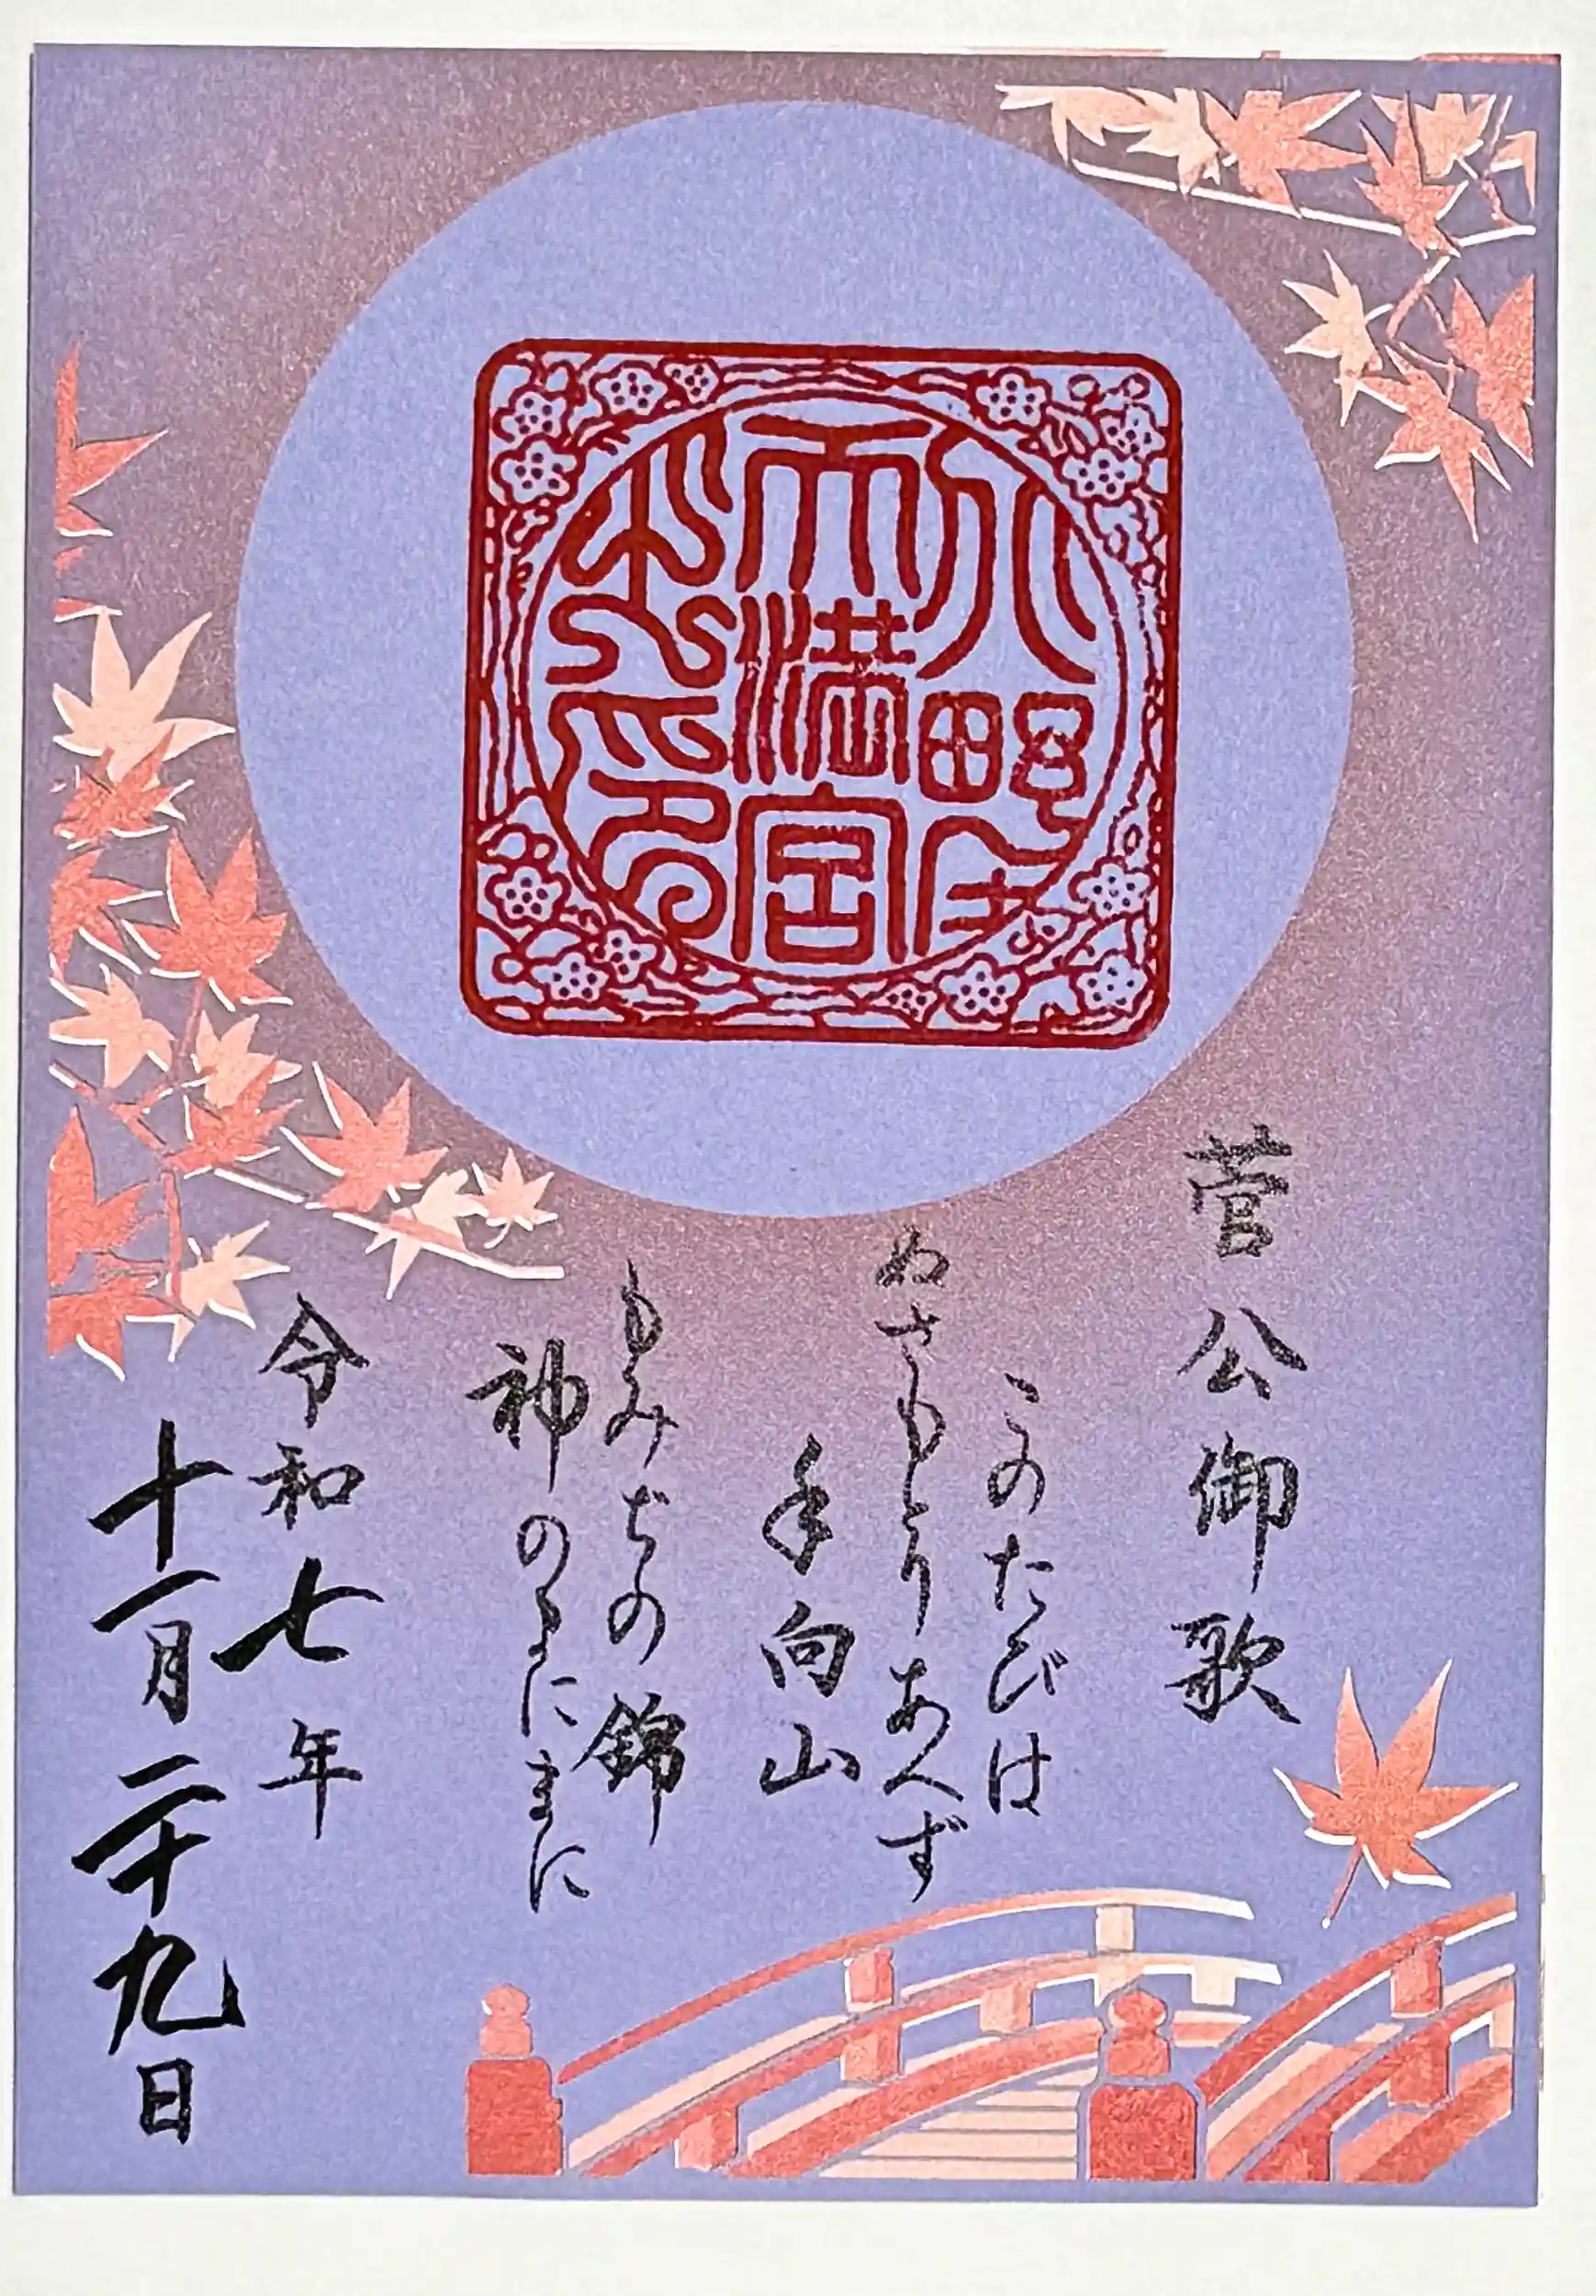 天満宮
菅公御歌
このたびは
ぬさもとりあへず
手向山
もみぢの錦
神のまにまに
令和七年
十一月二十九日